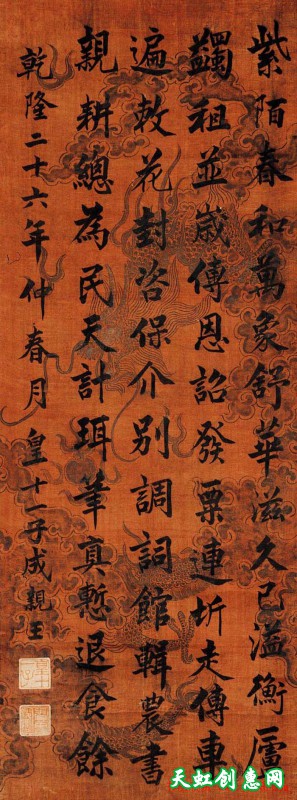 紫陌春和萬象舒華滋久已溢衡廬
蠲租並歲傳恩詔發粟連圻走傳車
遍敕花封咨保介別調詞館輯農書
親耕總為民天計珥筆真慙退食餘
乾隆二十六年仲春月皇十一子成親王
天虹创意网